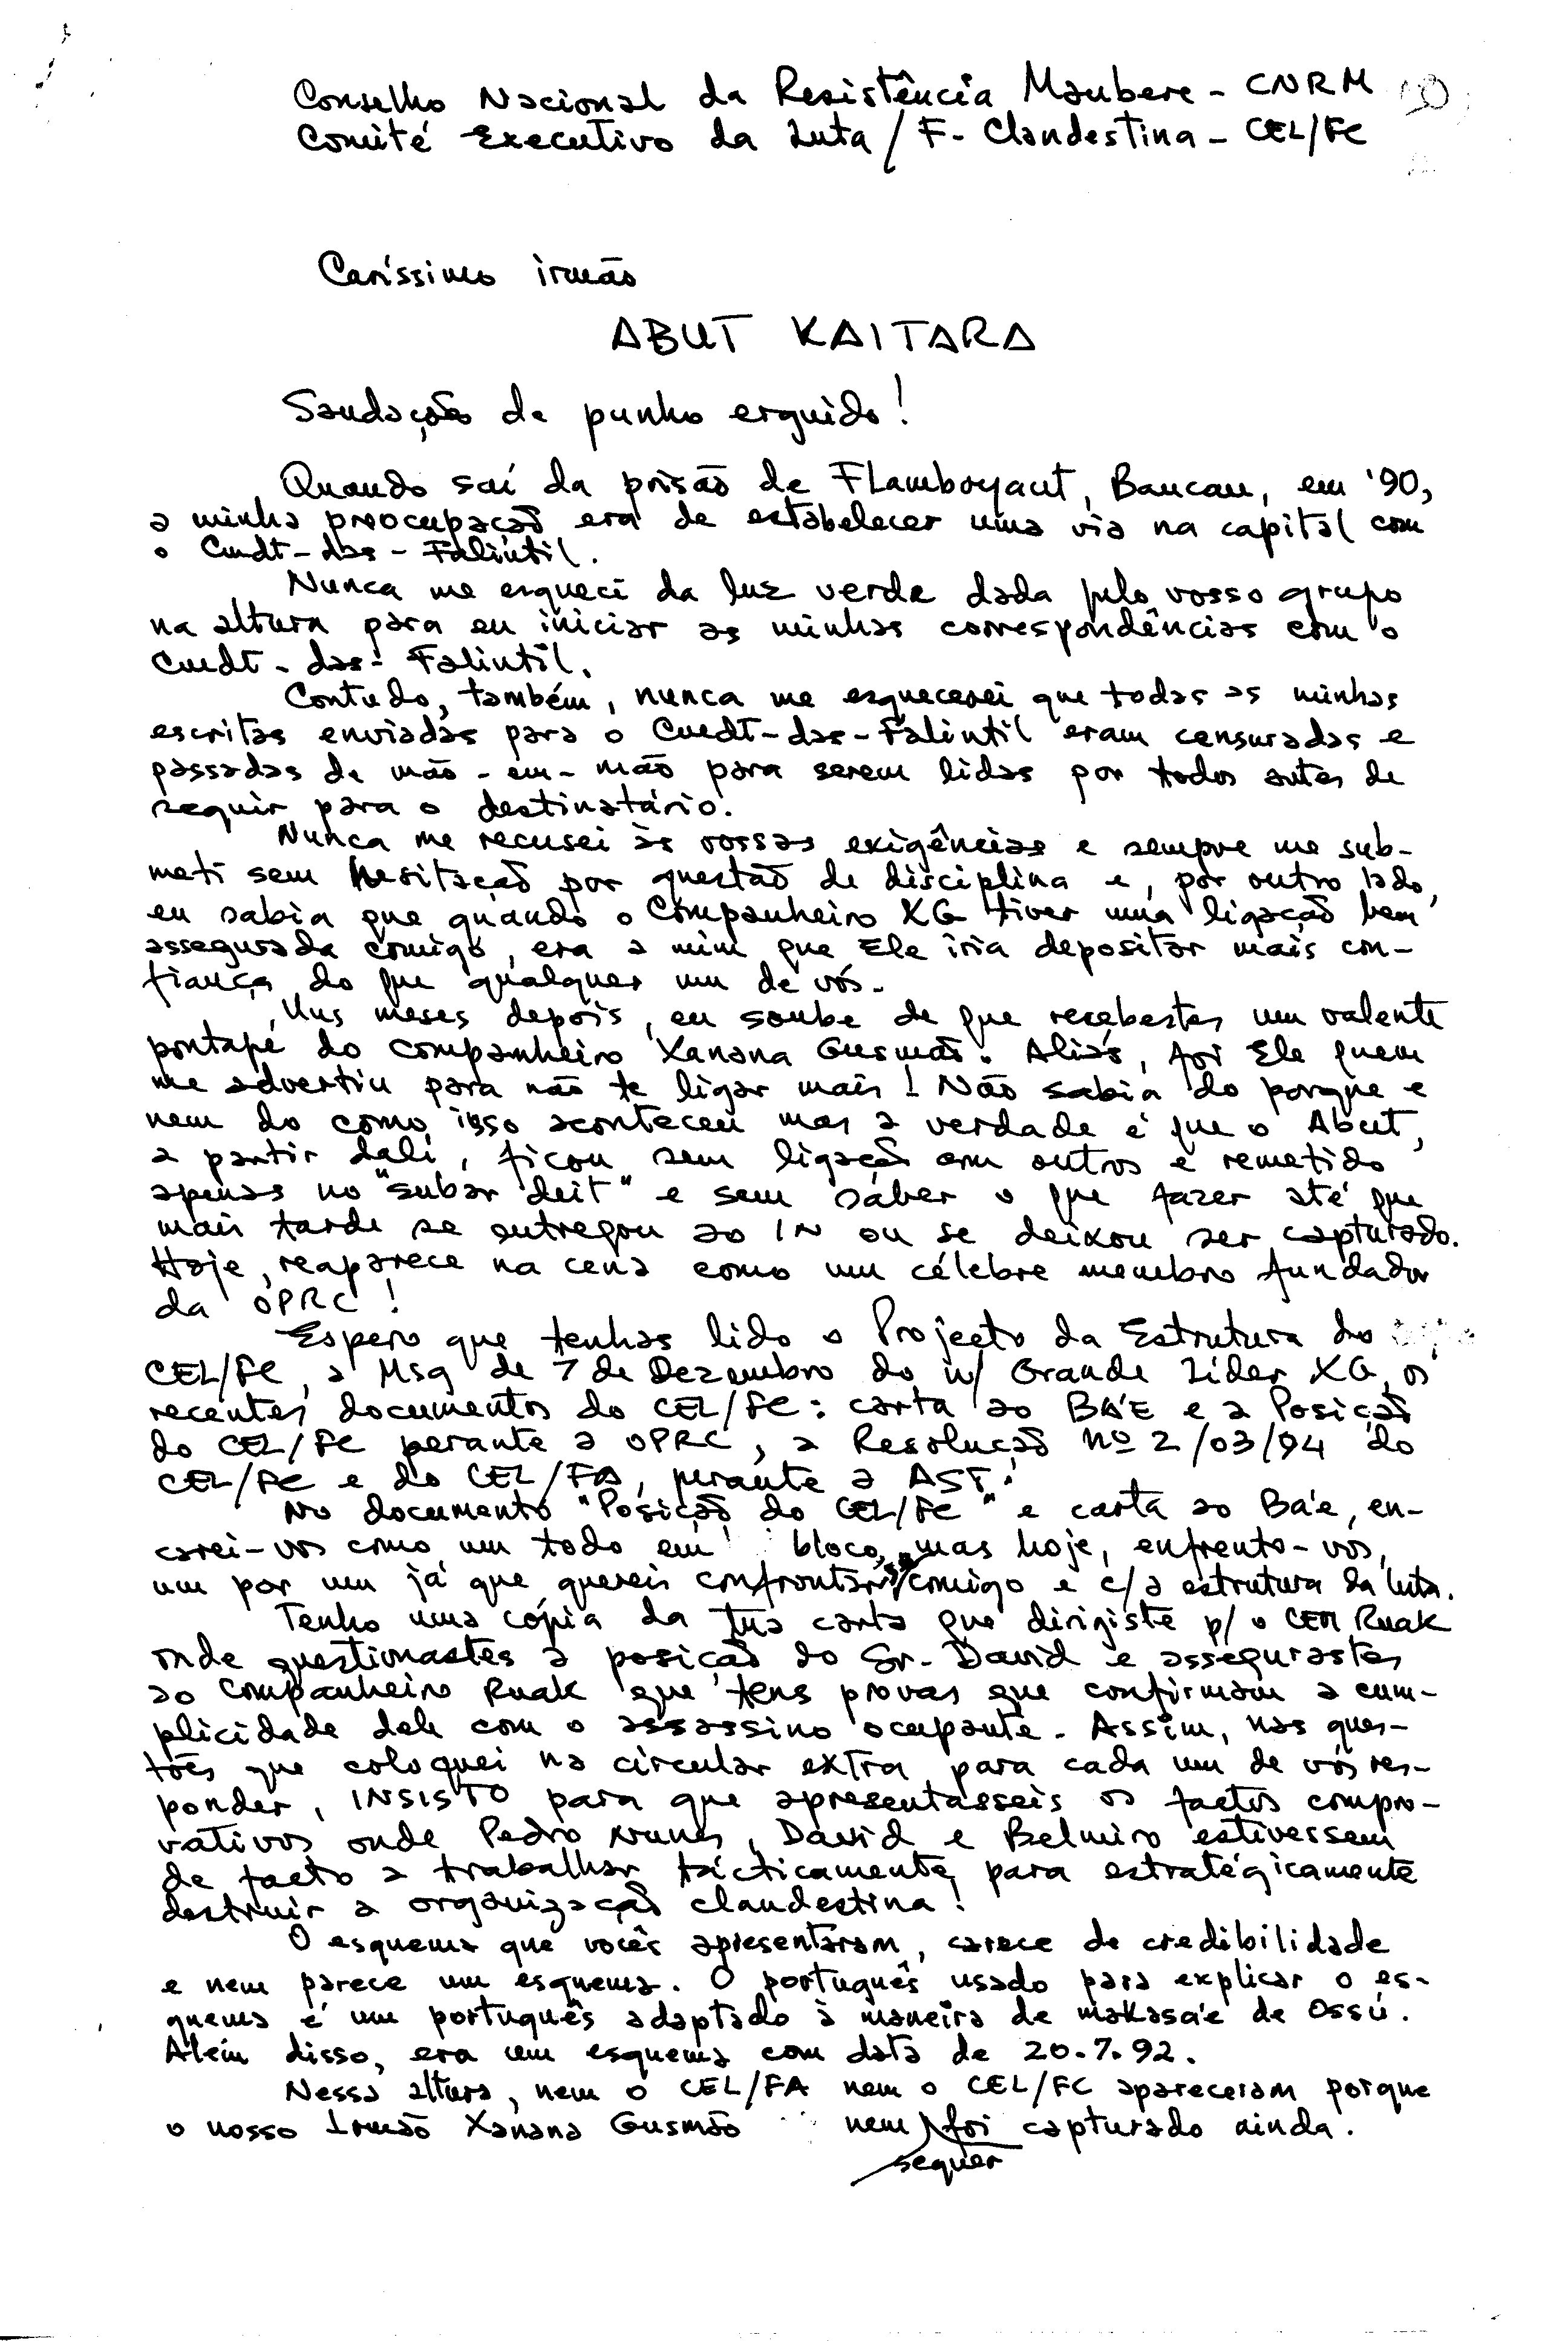 Conselho Nacional da Resistência Maubere - CNRM
Comité Executivo da Luta / F. Clandestina - CEL/FC
Caríssimo irmão
ABUT KAITARA
Saudação de punho erguido!
Quando saí da prisão de Flamboyant, Baucau, em '90,
a minha preocupação era de estabelecer uma via na capital com
o Cmdt-das-Falintil.
Nunca me esqueci da luz verde dada pelo vosso grupo
na altura para eu iniciar as minhas correspondências com o
Cmdt-das-Falintil.
Contudo, também, nunca me esquecerei que todas as minhas
escritas enviadas para o Cmdt-das-Falintil eram censuradas e
passadas de mão-em-mão para serem lidas por todos antes de
seguir para o destinatário.
Nunca me recusei às vossas exigências e sempre me sub-
meti sem hesitação por questão de disciplina e, por outro lado,
eu sabia que quando o Companheiro XG tiver uma ligação bem
assegurada comigo, era a mim que Ele iria depositar mais con-
fiança do que qualquer um de vós.
Uns meses depois, eu soube de que recebestes um valente
pontapé do companheiro Xanana Gusmão. Aliás, foi Ele quem
me advertiu para não te ligar mais! Não sabia do porque e
nem do como isso aconteceu mas a verdade é que o Abut,
a partir dali, ficou sem ligação com outros e remetido
apenas no "subar deit" e sem saber o que fazer até que
mais tarde se entregou ao IN ou se deixou ser capturado.
Hoje, reaparece na cena como um célebre membro fundador
da OPRC!
Espero que tenhas lido o Projecto da Estrutura do
CEL/FC, a Msg de 7 de Dezembro do n/ Grande Líder XG, os
recentes documentos do CEL/FC: carta ao BÁ'E e a Posição
do CEL/FC perante a OPRC, a Resolução nº 2/03/94 do
CEL/FC e do CEL/FA, perante a AST.
No documento "Posição do CEL/FC" e carta ao Bá'e, en-
carei-vos como um todo em bloco, mas hoje, enfrento-vos,
um por um já que quereis confrontar-se comigo e c/a estrutura da luta.
Tenho uma cópia da tua carta que dirigiste p/ o CEM Ruak
onde questionastes a posição do Sr. David e assegurastes
ao Companheiro Ruak que tens provas que confirmam a cum-
plicidade dele com o assassino ocupante. Assim, nas ques-
tões que coloquei na circular extra para cada um de vós res-
ponder, INSISTO para que apresentasseis os factos compro-
vativos onde Pedro Nunes, David e Belmiro estivessem
de facto a trabalhar tácticamente para estratégicamente
destruir a organização clandestina!
O esquema que vocês apresentaram, carece de credibilidade
e nem parece um esquema. O português usado para explicar o es-
quema é um português adaptado à maneira de makasa'e de Ossú.
Além disso, era um esquema com data de 20.7.92.
Nessa altura, nem o CEL/FA nem o CEL/FC apareceram porque
o nosso Irmão Xanana Gusmão nem foi capturado ainda.
sequer